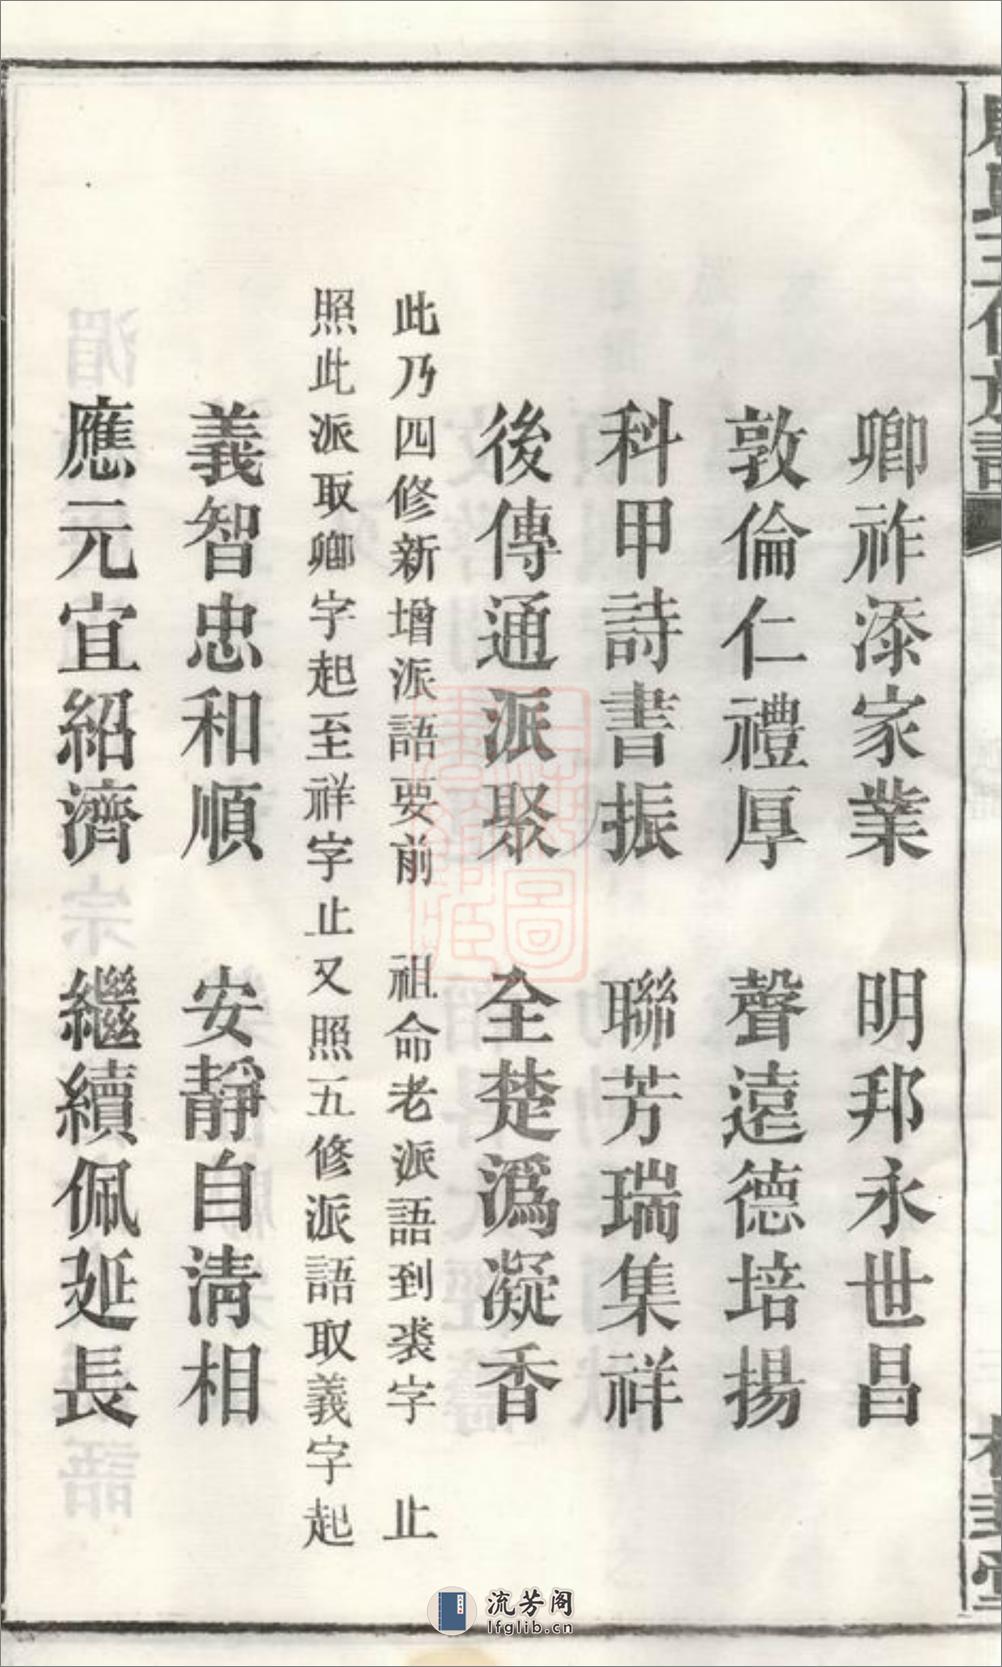 卿祚添家業 明邦永世昌
敦倫仁禮厚 聲遠德培揚
科甲詩書振 聯芳瑞集祥
後傳通派聚 全楚溈凝香
此乃四修新增派語要前 祖命老派語到裘字 止
照此派取卿字起至祥字止又照五修派語取義字起
義智忠和順 安靜自清相
應元宜紹濟 繼續佩延長
流芳阁
lfglib.cn